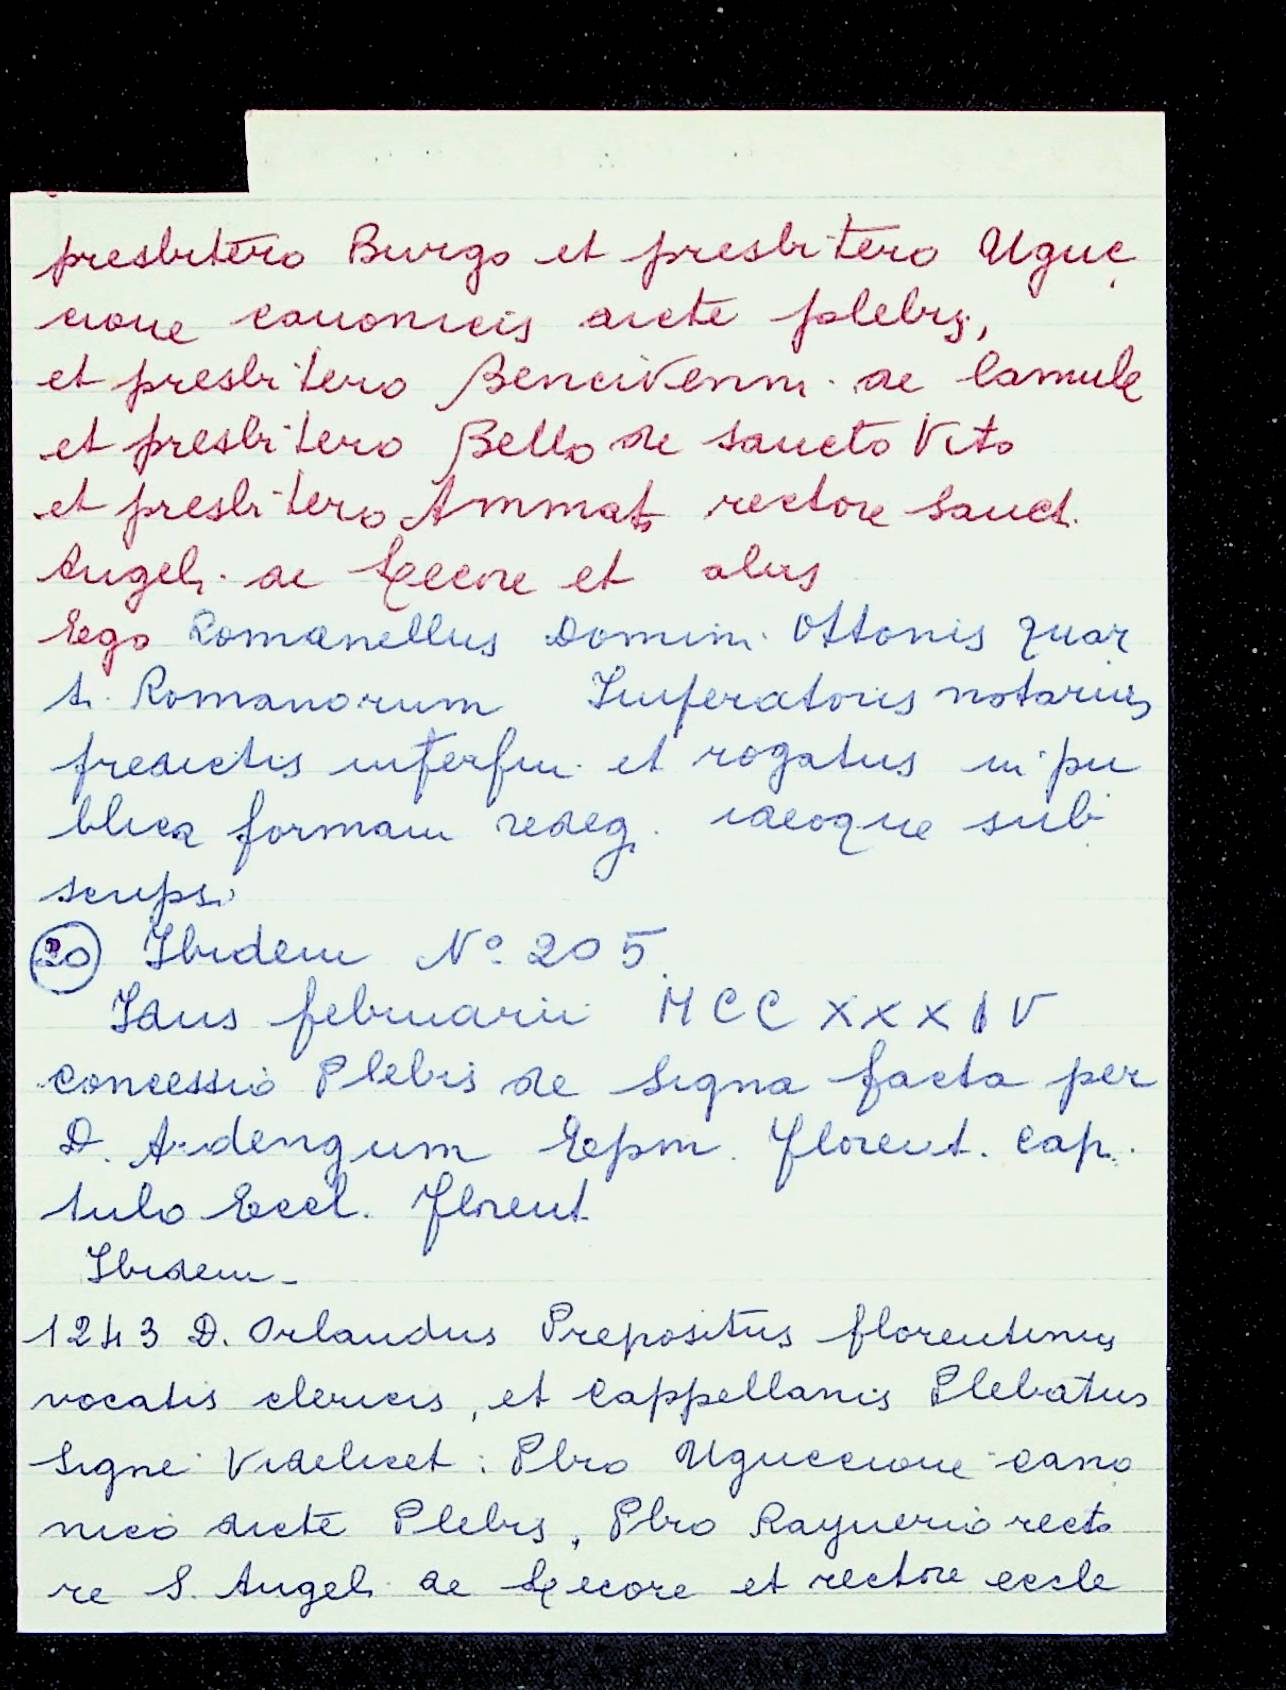 presbitero Burgo et presbitero Uguc
cione canonicis dicte plebis,
et presbitero Bencivenni de Camule
et presbitero Bello de sancto Vito
et presbitero Ammato rectore Sancti
Angeli de Lecore et aliis
Ego Romanellus Domini Ottonis quar
ti Romanorum Imperatoris notarius
predictis interfui et rogatus in pu
blica formam redegi ideoque sub
scripsi
20 Ibidem Nº 205
Idus februarii MCCXXXIV
concessio Plebis de Signa facta per
D. Ardengum Epm. florent. Capi
tulo Eccl. florent
Ibidem -
1243 D. Orlandus Prepositus florentinus
vocatis clericis, et Cappellanis Plebatus
Signe Videlicet: Pbro Uguccione cano
nico dicte Plebis, Pbro Raynerio recto
re S. Angeli de Lecore et rectore eccle